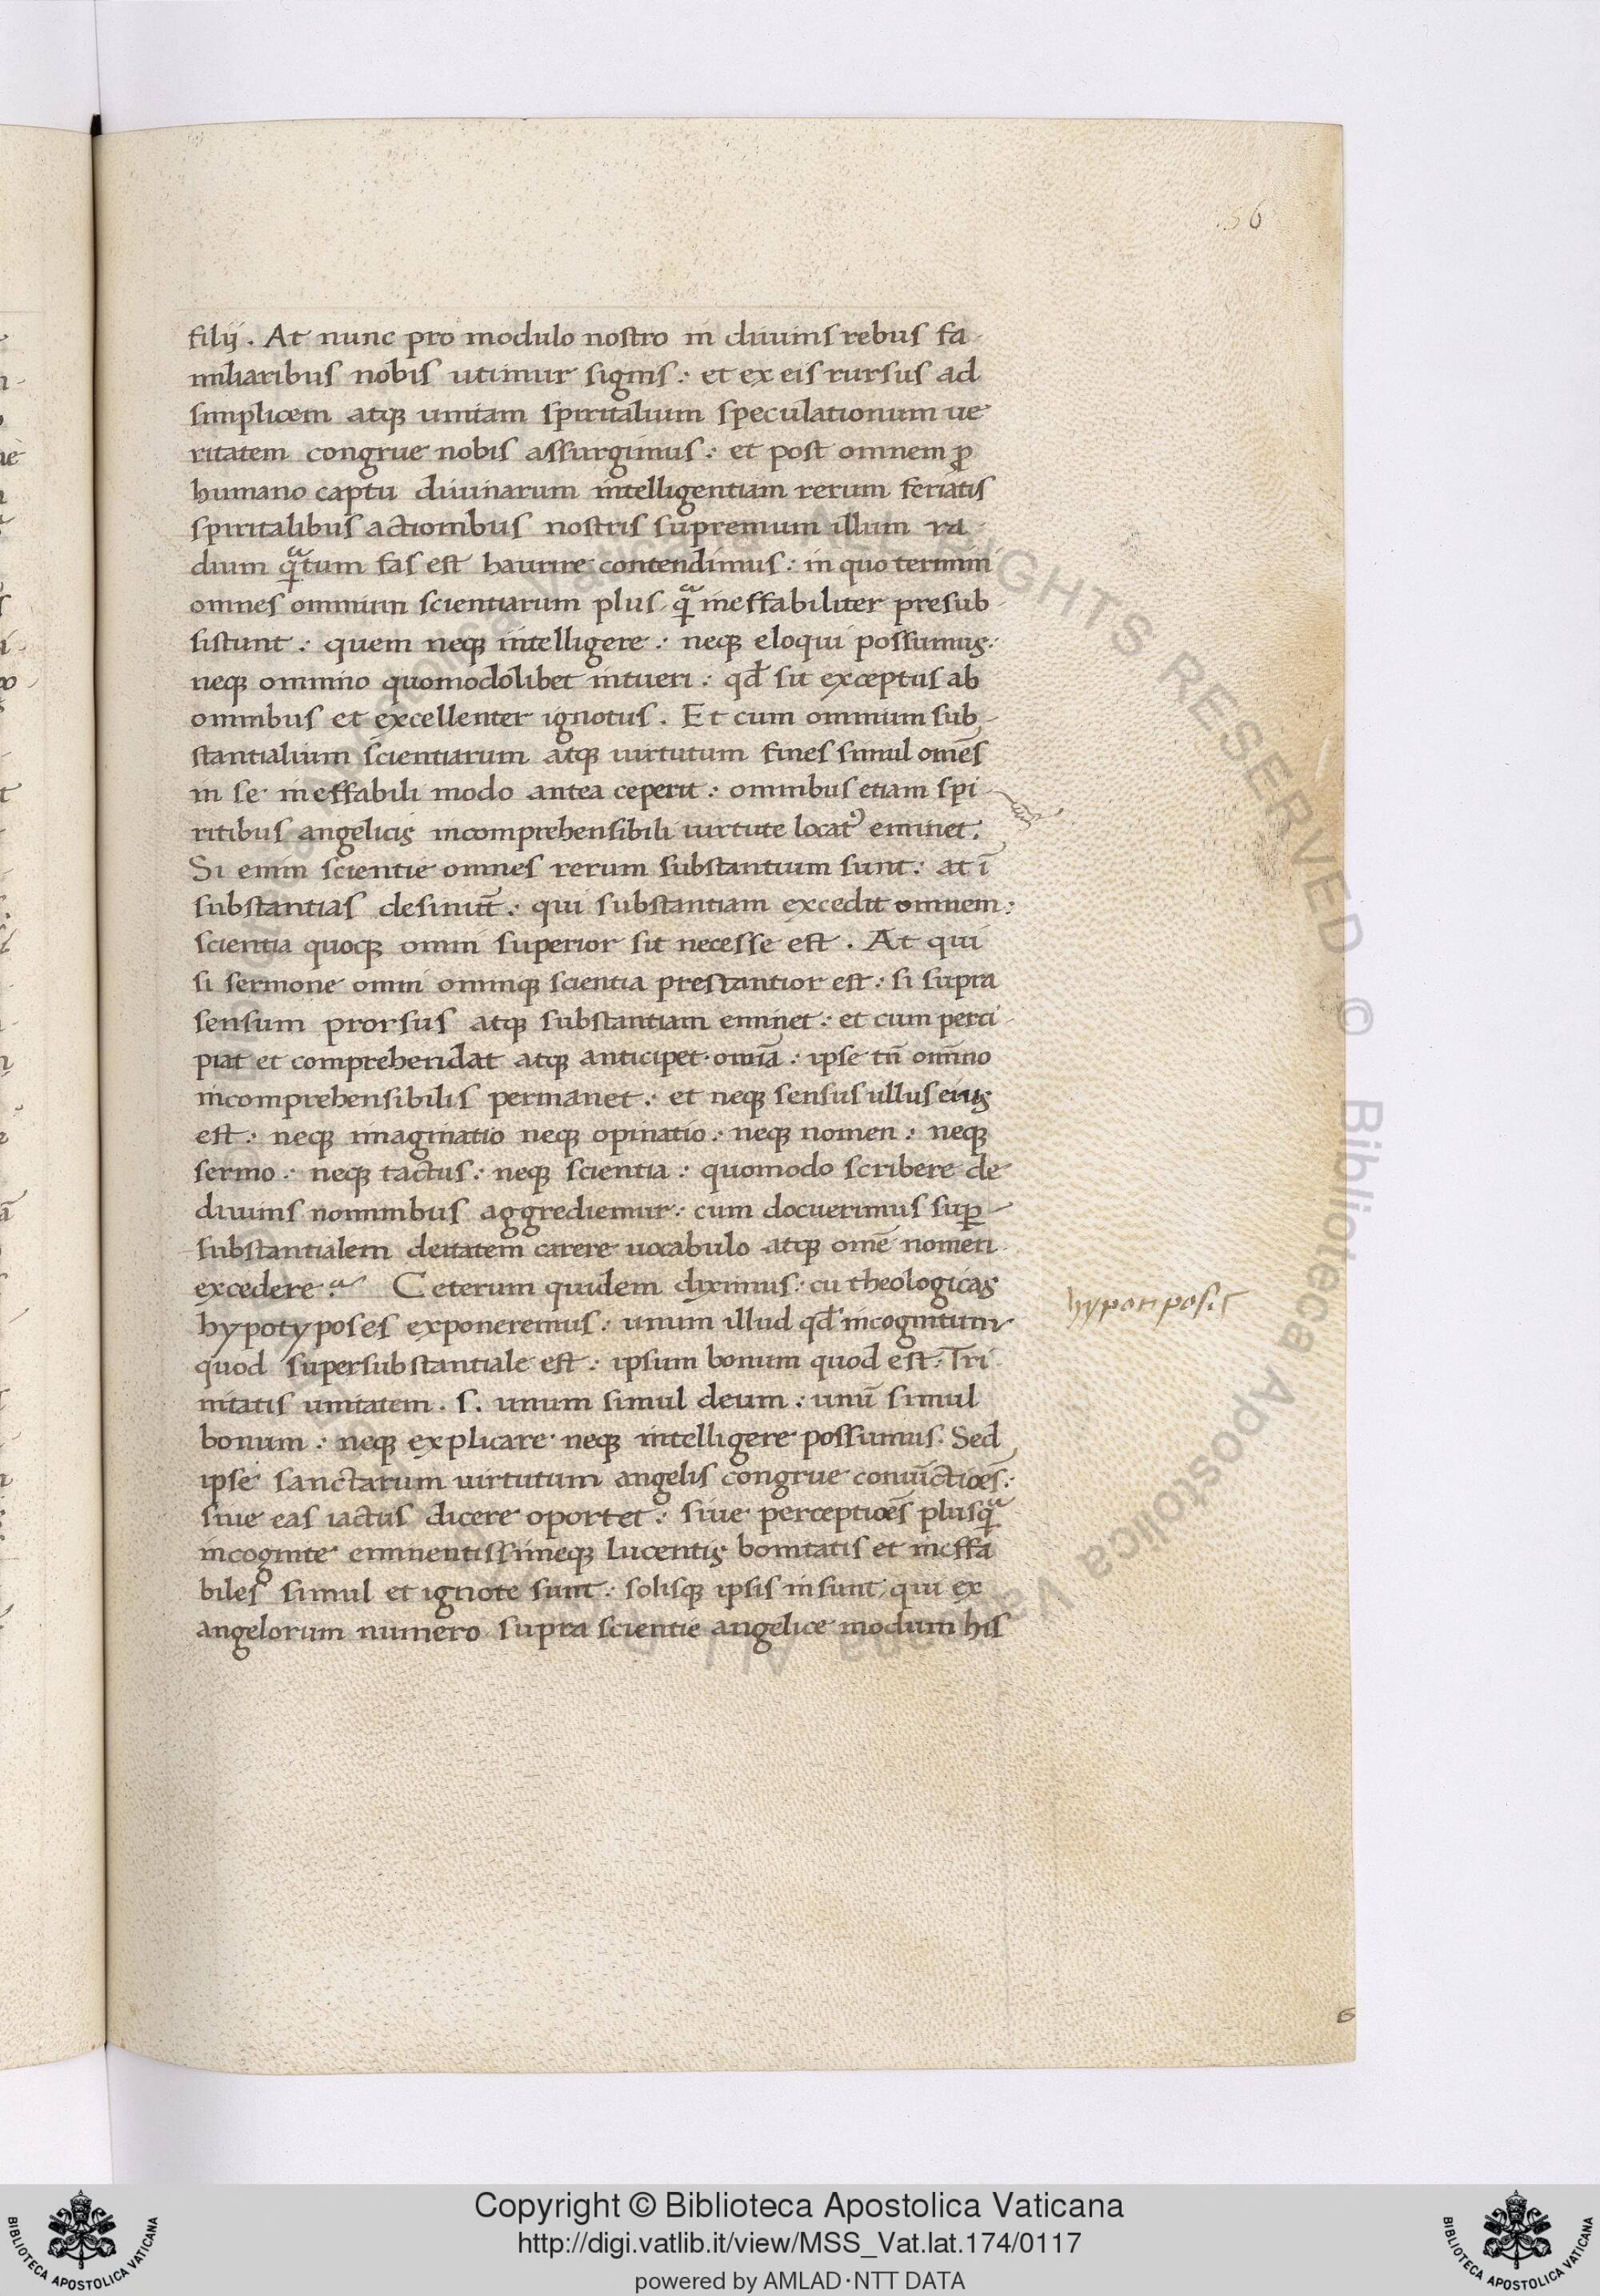 56
filij . At nunc pro modulo nostro in diuinis rebus fa-
miliaribus nobis utimur signis : et ex eis rursus ad
simplicem atq; unitam spiritalium speculationum ue
ritatem congrue nobis assurgimus : et post omnem ꝓ
humano captu diuinarum intelligentiam rerum feriatis
spiritalibus actionibus nostris supremum illum ra-
dium qᵃtum fas est haurire contendimus : in quo termini
omnes omnium scientiarum plus qᵃ ineffabiliter presub-
sistunt : quem neq; intelligere : neq; eloqui possumus :
neq; omnino quomodolibet intueri : qđ sit exceptus ab
omnibus et excellenter ignotus . Et cum omnium sub-
stantialium scientiarum atq; uirtutum fines simul omēs
in se ineffabili modo antea ceperit : omnibus etiam spi-
ritibus angelicis incomprehensibili uirtute locat᾽ eminet .
Si enim scientie omnes rerum substantium sunt : at ī
substantias desinūt : qui substantiam excedit omnem :
scientia quoq; omni superior sit necesse est . At qui
si sermone omni omniq; scientia prestantior est : si supra
sensum prorsus atq; substantiam eminet : et cum perci-
piat et comprehendat atq; anticipet omīa : ipse tn̄ omīno
incomprehensibilis permanet : et neq; sensus ullus eius
est : neq; imaginatio neq; opinatio : neq; nomen : neq;
sermo : neq; tactus : neq; scientia : quomodo scribere de
diuinis nominibus aggrediemur : cum docuerimus suꝑ-
substantialem deitatem carere uocabulo atq; omē nomen
excedere : Ceterum quidem diximus : cū theologicas
hypotyposes exponeremus : unum illud qđ incognitum
quod supersubstantiale est : ipsum bonum quod est : Tri-
nitatis unitatem . s . unum simul deum : unū simul
bonum : neq; explicare neq; intelligere possumus . Sed
ipse sanctarum uirtutum angelis congrue coniūctioēs :
siue eas iactus dicere oportet : siue perceptioēs plusqᵃ
incognite eminentissimeq; lucentis bonitatis et ineffa
biles simul et ignote sunt : solisq; ipsis insunt qui ex
angelorum numero supra scientie angelice modum his
hypotiposis
6
© Biblioteca Apostolica Vaticana ALL RIGHTS RESERVED © Biblioteca Apostolica Vaticana ALL
Copyright © Biblioteca Apostolica Vaticana
http://digi.vatlib.it/view/MSS_Vat.lat.174/0117
powered by AMLAD·NTT DATA
BIBLIOTECA APOSTOLICA VATICANA
BIBLIOTECA APOSTOLICA VATICANA